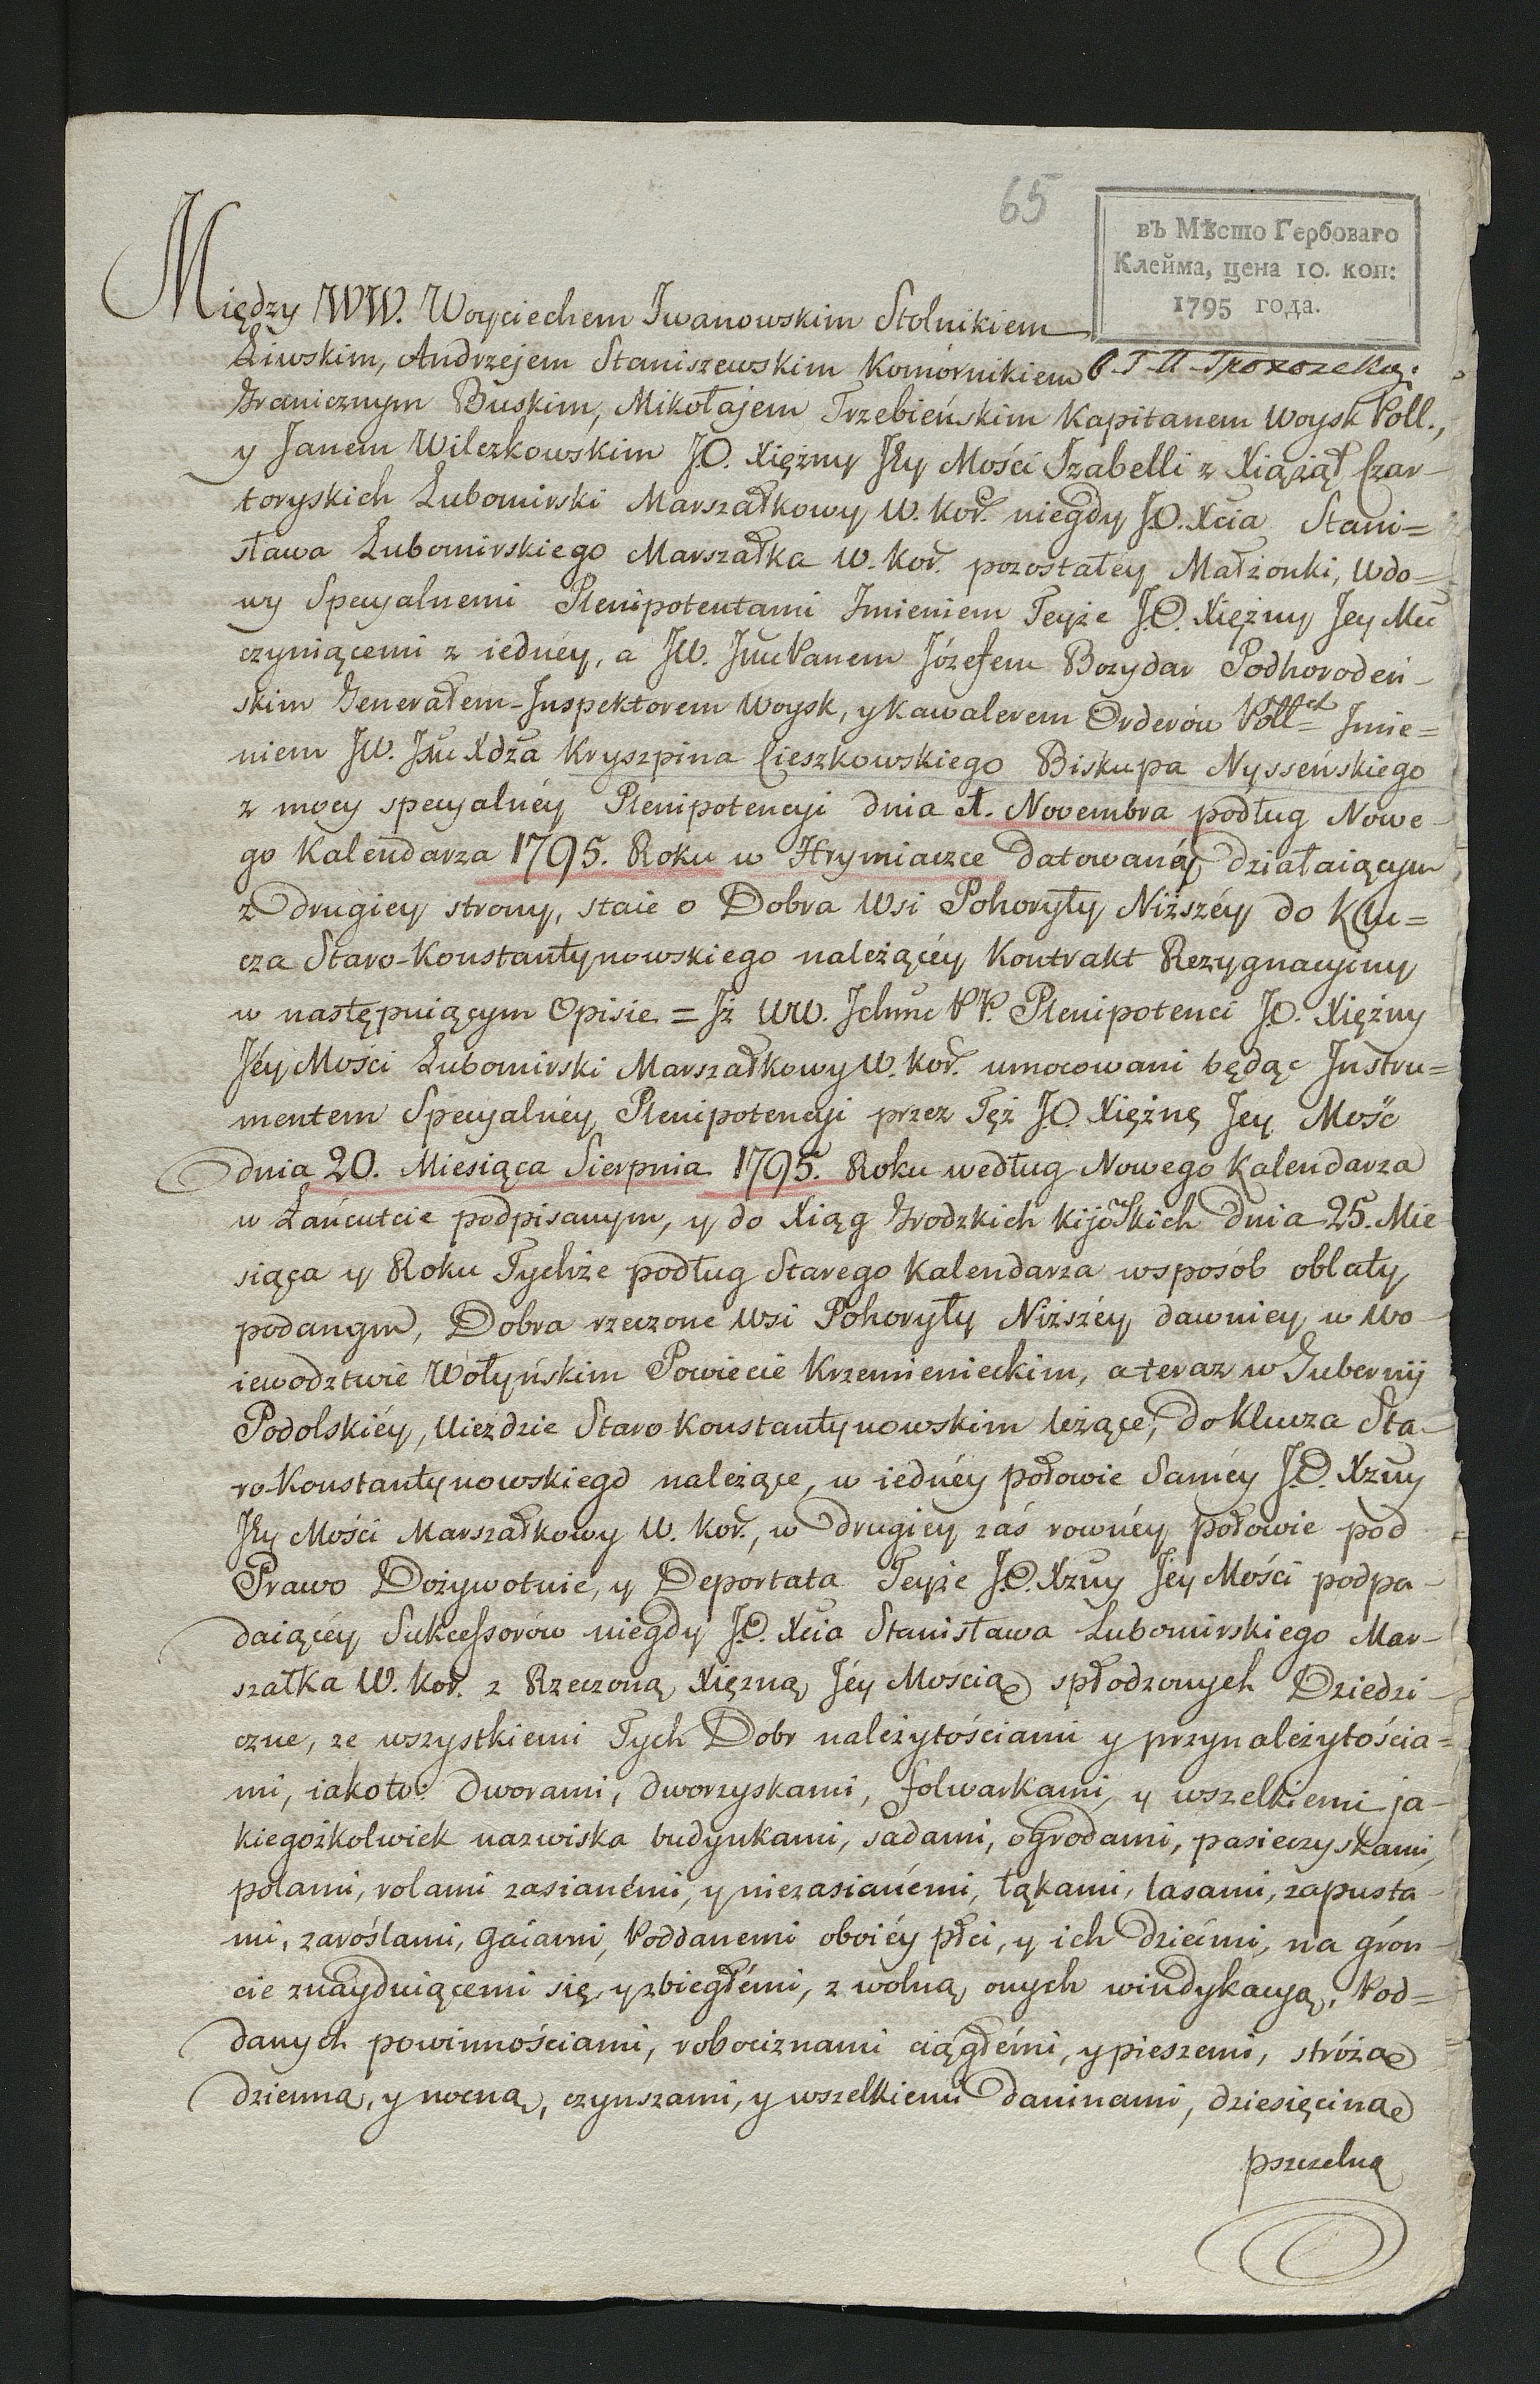 65
въ Мѣсто Гербоваго
Клейма, цена 10. коп:
1795 года.
Między WW. Woyciechem Iwanowskim Stolnikiem
Liwskim, Andrzejem Staniszewskim Komornikiem
Granicznym Buskim, Mikołajem Trzebieńskim Kapitanem Woysk Poll.,
y Janem Wilczkowskim J.O. Xiężny Jéy Mości Izabelli z Xiążiąt Czar-
toryskich Lubomirski Marszałkowy W. Kor. niegdy J.O. Xcia Stani=
sława Lubomirskiego Marszałka W. Kor. pozostałéy Małżonki, Wdo=
wy Specyalnemi Plenipotentami Imieniem Teyże J.O. Xiężny Jey Mci
czyniącemi z iednéy, a JW. Jmć Panem Józefem Bozydar Podhorodeń-
skim Generałem-Inspektorem Woysk, y Kawalerem Orderow Poll=ch Imie=
niem JW. Jmć Xdza Kryszpina Cieszkowskiego Biskupa Nysseńskiego
z mocy specyalnéy Plenipotencyi dnia 1. Novembra podług Nowe-
go Kalendarza 1795. Roku w Hrymiaczce datowanéy działaiącym
z drugiey strony, staie o Dobra Wsi Pohoryły Niższéy do Klu=
cza Staro-Konstantynowskiego należącéy Kontrakt Rezygnacyiny
w następuiącym Opisie = Iż WW. Ichmć PP. Plenipotenci J.O. Xiężny
Jéy Mości Lubomirski Marszałkowy W. Kor. umocowani będąc Instru=
mentem Specyalnéy Plenipotencyi przez Tęż J.O. Xiężnę Jey Mość
dnia 20. Miesiąca Sierpnia 1795. Roku według Nowego Kalendarza
w Łańcutcie podpisanym, y do Xiąg Grodzkich Kijowskich dnia 25. Mie
siąca y Roku Tychże podług Starego Kalendarza wsposób oblaty
podanym, Dobra rzeczone Wsi Pohoryły Niższéy, dawniey w Wo-
iewodztwie Wołyńskim Powiecie Krzemienieckim, a teraz w Gubernij
Podolskiéy, Uiezdzie Staro Konstantynowskim leżące, do Klucza Sta-
ro-Konstantynowskiego należące, w iednéy połowie Saméy J.O. Xzny
Jéy Mości Marszałkowy W. Kor., w drugiey zaś rownéy połowie pod
Prawo Dożywotnie, y Deportata Teyże J.O. Xzny Jey Mości podpa-
daiącéy Sukcessorów niegdy J.O. Xcia Stanisława Lubomirskiego Mar-
szałka W. Kor. z Rzeczoną Xiężną Jéy Mością spłodzonych Dziedzi-
czne, ze wszystkiemi Tych Dobr należytościami y przynależytościa=
mi, iakoto: dworami, dworzyskami, folwarkami, y wszelkiemi ja-
kiegożkolwiek nazwiska budynkami, sadami, ogrodami, pasieczyskami,
polami, rolami zasianémi, y niezasianémi, łąkami, lasami, zapusta-
mi, zaroślami, gaiami, Poddanemi oboiéy płci, y ich Dziećmi, na gron-
cie znayduiącemi się, y zbiegłémi, z wolną onych windykacyą, Pod=
danych powinnościami, robociznami ciągłémi, y pieszemi, stróżą
dzienną, y nocną, czynszami, y wszelkiemi daninami, dziesięciną
pszczelną